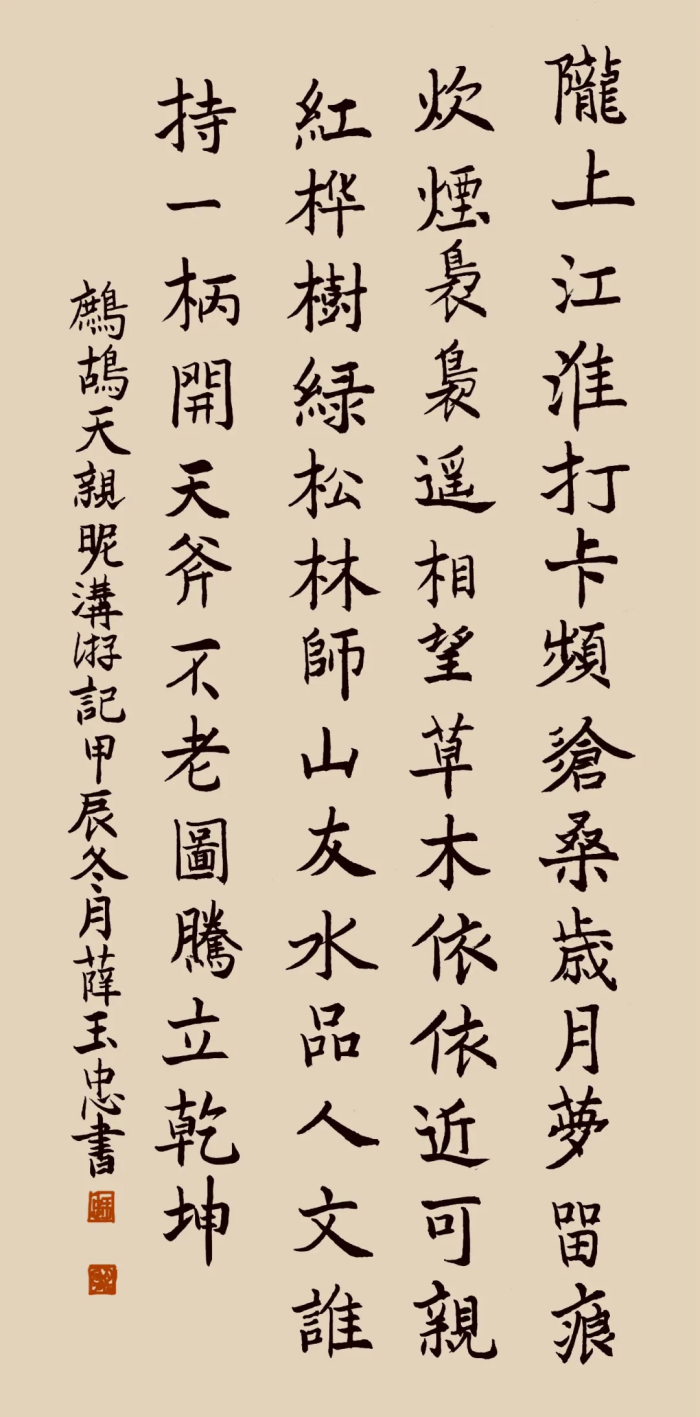 隴上江淮打卡頻滄桑歲月夢留痕
炊煙裊裊遥相望草木依依近可親
紅桦樹緑松林師山友水品人文誰
持一柄開天斧不老圖騰立乾坤
鷓鴣天親昵溝游記甲辰冬月薛玉忠書